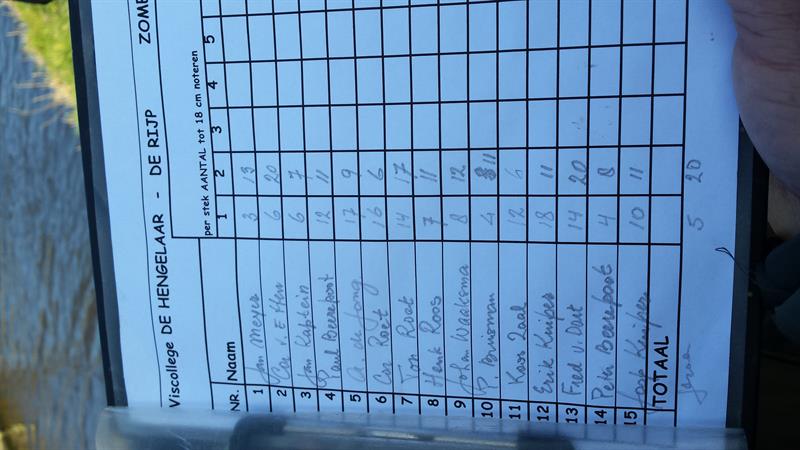 Viscollege DE HENGELAAR - DE RIJP ZOME
per stek AANTAL tot 18 cm noteren
NR. Naam 1 2 3 4 5
1 Jan Meyer 3 13
2 Cor v. Etten 6 20
3 Jan Kaptein 6 7
4 Paul Beerepoot 12 11
5 A. de Jong 17 9
6 Cor Roet 16 6
7 Ton Roet 14 17
8 Henk Roos 7 11
9 John Waaksma 8 12
10 P. Bruisman 4 11
11 Koos Zaal 12 6
12 Erik Knijper 18 11
13 Fred v. Dort 14 20
14 Petri Beerepoot 4 8
15 Knijper 10 11
TOTAAL
5 20